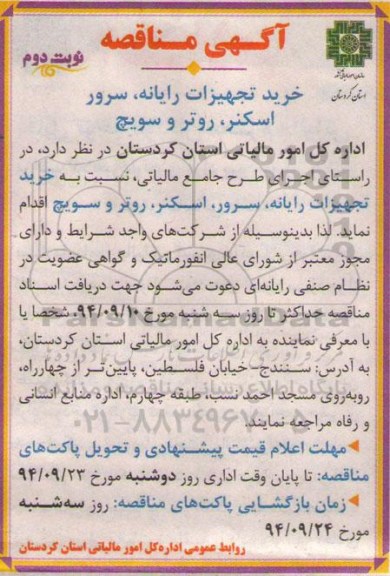 آگهی مناقصه
نوبت دوم
سازمان امور مالیاتی کشور
استان کردستان
خرید تجهیزات رایانه، سرور
اسکنر، روتر و سویچ
اداره کل امور مالیاتی استان کردستان در نظر دارد، در
راستای اجرای طرح جامع مالیاتی، نسبت به خرید
تجهیزات رایانه، سرور، اسکنر، روتر و سویچ اقدام
نماید. لذا بدینوسیله از شرکت‌های واجد شرایط و دارای
مجوز معتبر از شورای عالی انفورماتیک و گواهی عضویت در
نظام صنفی رایانه‌ای دعوت می‌شود جهت دریافت اسناد
مناقصه حداکثر تا روز سه شنبه مورخ ۹۴/۰۹/۱۰، شخصا یا
با معرفی نماینده به اداره کل امور مالیاتی استان کردستان،
به آدرس: سنندج-خیابان فلسطین، پایین‌تر از چهارراه،
روبه‌روی مسجد احمد نسب، طبقه چهارم، اداره منابع انسانی
و رفاه مراجعه نمایند.
مهلت اعلام قیمت پیشنهادی و تحویل پاکت‌های
مناقصه: تا پایان وقت اداری روز دوشنبه مورخ ۹۴/۰۹/۲۳
زمان بازگشایی پاکت‌های مناقصه: روز سه‌شنبه
مورخ ۹۴/۰۹/۲۴
روابط عمومی اداره‌کل امور مالیاتی استان کردستان
ParsNamadData
۰۲۱-۸۸۳۴۹۶۷۰-۵